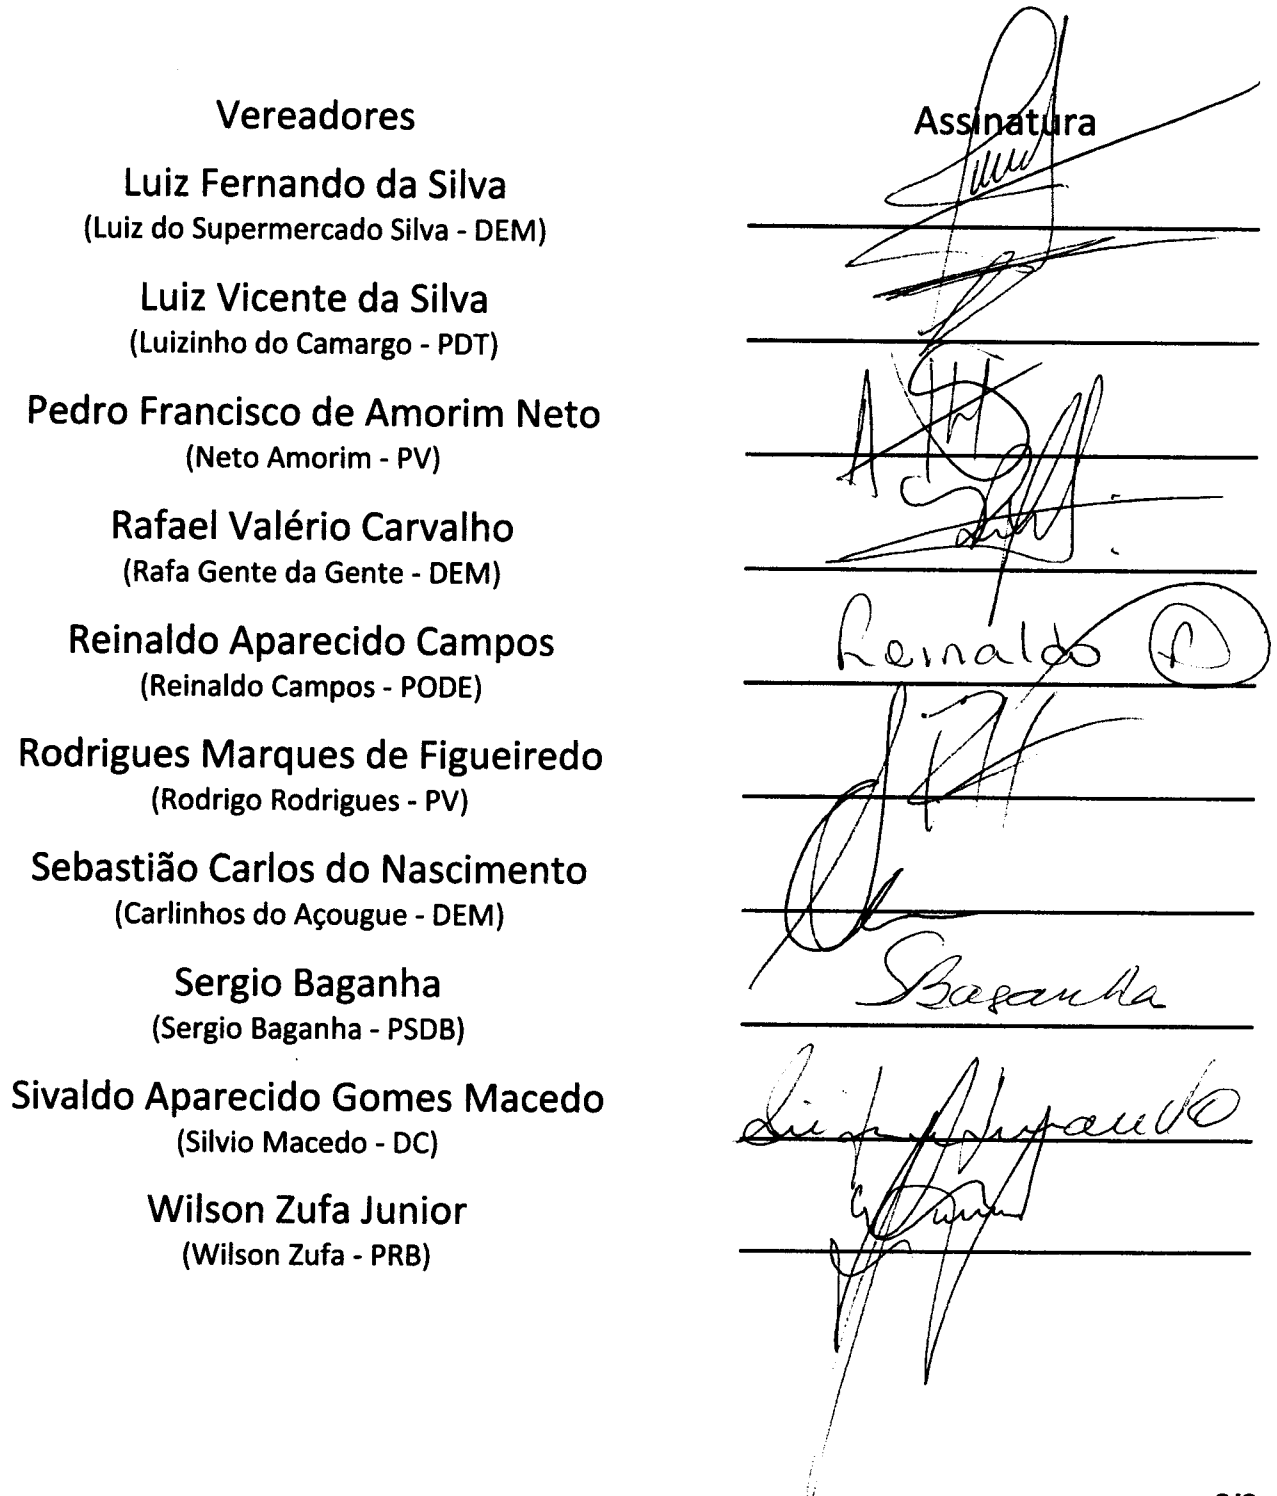 Vereadores
Assinatura
Luiz Fernando da Silva
(Luiz do Supermercado Silva - DEM)
Luiz Vicente da Silva
(Luizinho do Camargo - PDT)
Pedro Francisco de Amorim Neto
(Neto Amorim - PV)
Rafael Valério Carvalho
(Rafa Gente da Gente - DEM)
Reinaldo Aparecido Campos
(Reinaldo Campos - PODE)
Reinaldo
Rodrigues Marques de Figueiredo
(Rodrigo Rodrigues - PV)
Sebastião Carlos do Nascimento
(Carlinhos do Açougue - DEM)
Sergio Baganha
(Sergio Baganha - PSDB)
SBaganha
Sivaldo Aparecido Gomes Macedo
(Silvio Macedo - DC)
Wilson Zufa Junior
(Wilson Zufa - PRB)